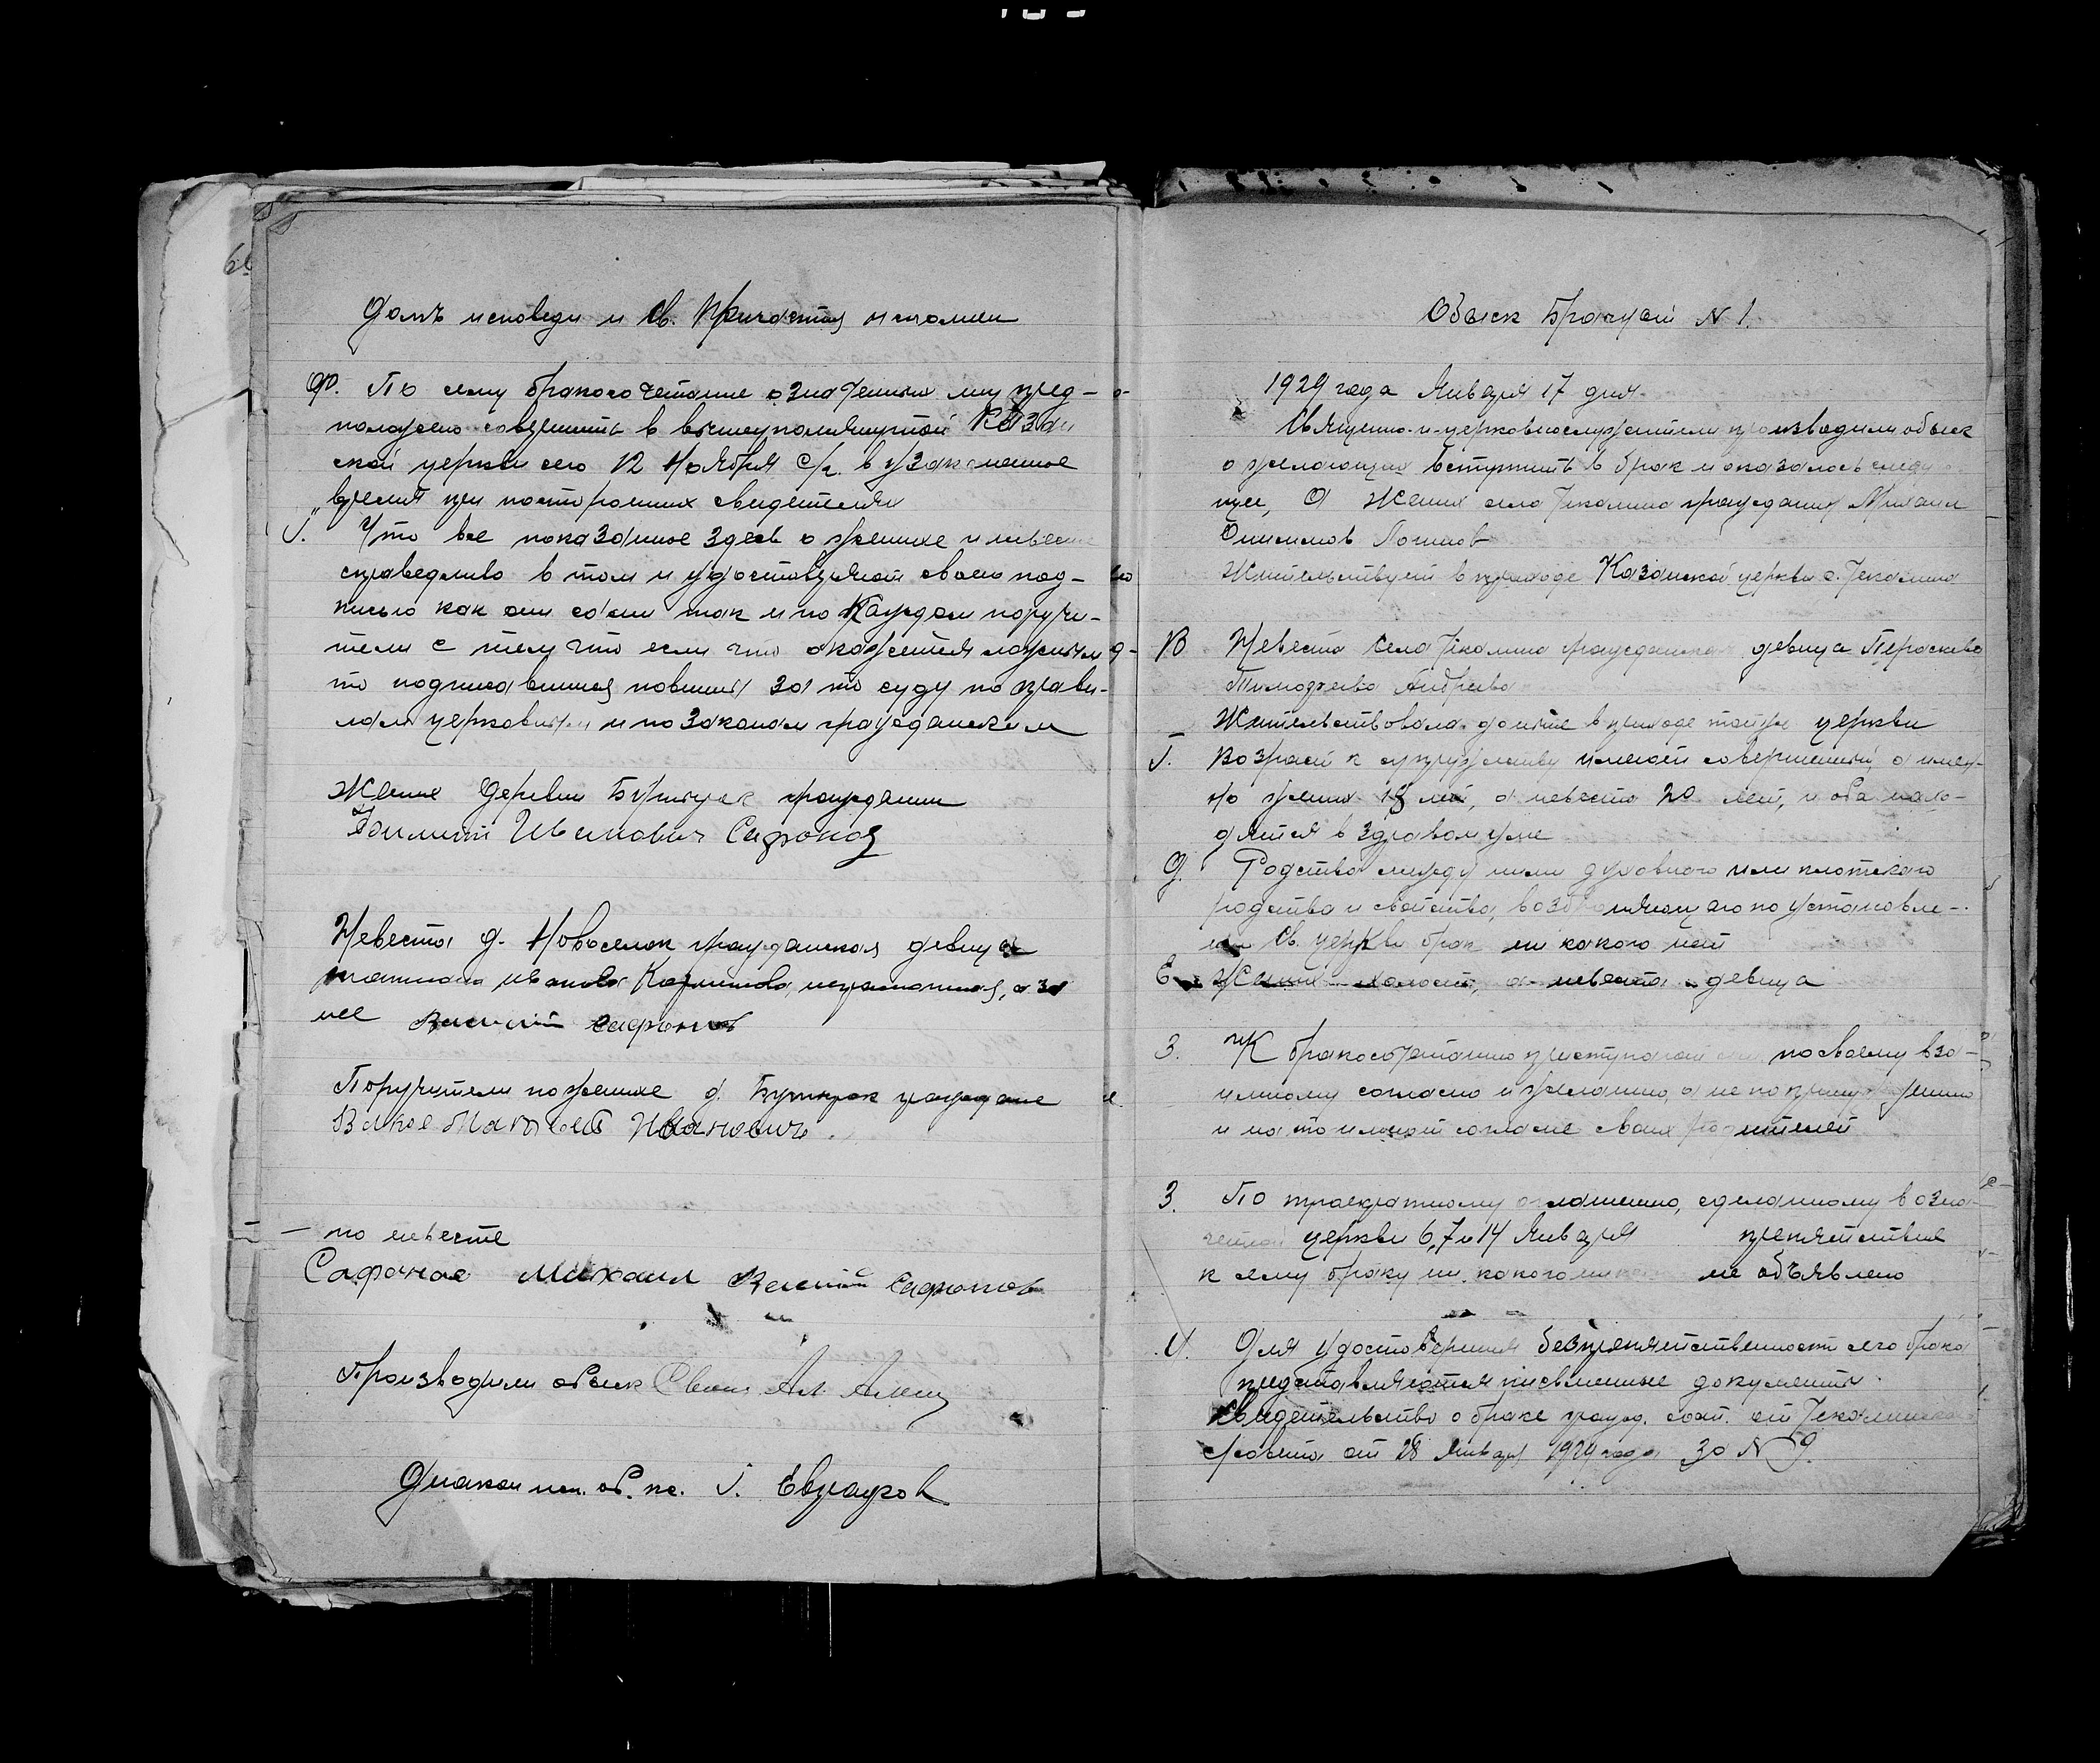 Долгъ исповеди и Св. Причастия исполнен
Ф. По сему бракосочетание означенных лиц пред-
положено совершить в вышеупомянутой Казан
ской церкви сего 12 Ноября с/г. в узаконенное
время при посторонних свидетелях
I. Что все показанное здесь о женихе и невесте
справедливо в том и удостоверяют своею под-
писью как они сами так и по каждом поручи-
тели с тем что если что окажется ложным
то подписавшиеся повинны за то суду по прави-
лам церковным и по законам гражданским
Жених деревни гражданин
Иванович Сафонов
Невеста д. Новоселок гражданская девица
Иванова неграмотная, а за
нее Василий Сафонов
Поручители по женихе д. граждане
Матвей Иванович
— по невесте
Сафонов Михаил Василий Сафонов
Производили обыск Свящ. Ал.
Диакон исп. об. пс. I.
Обыск Брачный N 1.
1929 года Января 17 дня
Священно-и-церковнослужители производили обыск
о желающих вступить в брак и оказалось следу
щее, А Жених села гражданин Михаил
Онисимов Логинов
Жительствует в приходе Казанской церкви с.
В Невеста села гражданская девица Параскева
Тимофеева Андреева
Жительствовала доныне в приходе той же церкви
Г. Возраст к супружеству имеют совершенный, а имен-
но жених 18 лет, а невеста 20 лет, и оба нахо-
дятся в здравом уме
Д. Родства между ними духовного или плотского
родства и свойства, возбраняющего по установле-
нию Св. церкви брак ни какого нет
Е Жених холост, а невеста девица
З. К бракосочетанию приступают они по своему вза-
имному согласию и желанию, а не по принуждению
и на то имеют согласие своих родителей
З. По троекратному оглашению, сделанному в озна-
ченной церкви 6, 7 и 14 Января препятствия
к сему браку ни какого никем не объявлено
И. Для удостоверения безпрепятственности сего брака
представляются письменные документы.
Свидетельство о браке гражд. сост. от
с/совета от 28 Января 1929 года за N 9.